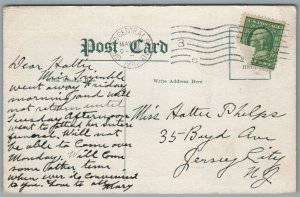 Post Card
Write Address Here
Dear Hattie
Miss
went away Friday
morning and will
not return until
Sunday afternoon
went to attend her sister's
funeral. Will not
be able to come over
Monday. Will come
some other time
when ever so convenient
to you. Love to all Mary
Miss Hattie Phelps
35 Boyd Ave
Jersey City
N.J.